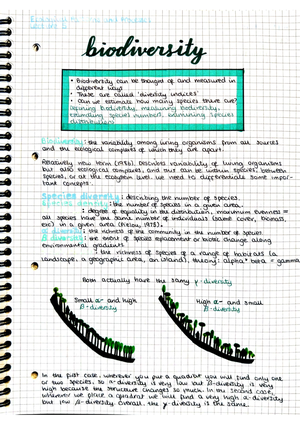 biodiversity
• Biodiversity can be thought of and measured in
different ways
• These are called 'diversity indices'
• Can we estimate how many species there are?
defining biodiversity, measuring biodiversity,
estimating species numbers, examining species
distributions
Biodiversity: the variability among living organisms from all sources
and the ecological complexes of which they are apart.
Relatively new term (1986). Describes variability of living organisms
but also ecological complexes, and this can be within species, between
species, or at the ecosystem level. We need to differentiate some impor-
tant concepts.
Species diversity: describing the number of species.
Species density: the number of species in a given area.
: degree of equality in the distribution, maximum evenness =
all species have the same number of individuals (same cover, biomass,
etc) in a given area (Pielou, 1975).
α diversity: the richness of the community in the number of species
β diversity: the extent of species replacement or biotic change along
environmental gradients
: the richness of species of a range of habitats (a
landscape, a geographic area, an island), meaning: alpha * beta = gamma
Both actually have the same γ-diversity
Small α- and high
β-diversity
High α- and small
β-diversity
In the first case, wherever you put a quadrat you will find only one
or two species, so α-diversity is very low but β-diversity is very
high because the structure changes so much. In the second case,
wherever we place a quadrat we will find a very high α-diversity
but low β-diversity. Overall, the γ-diversity is the same.